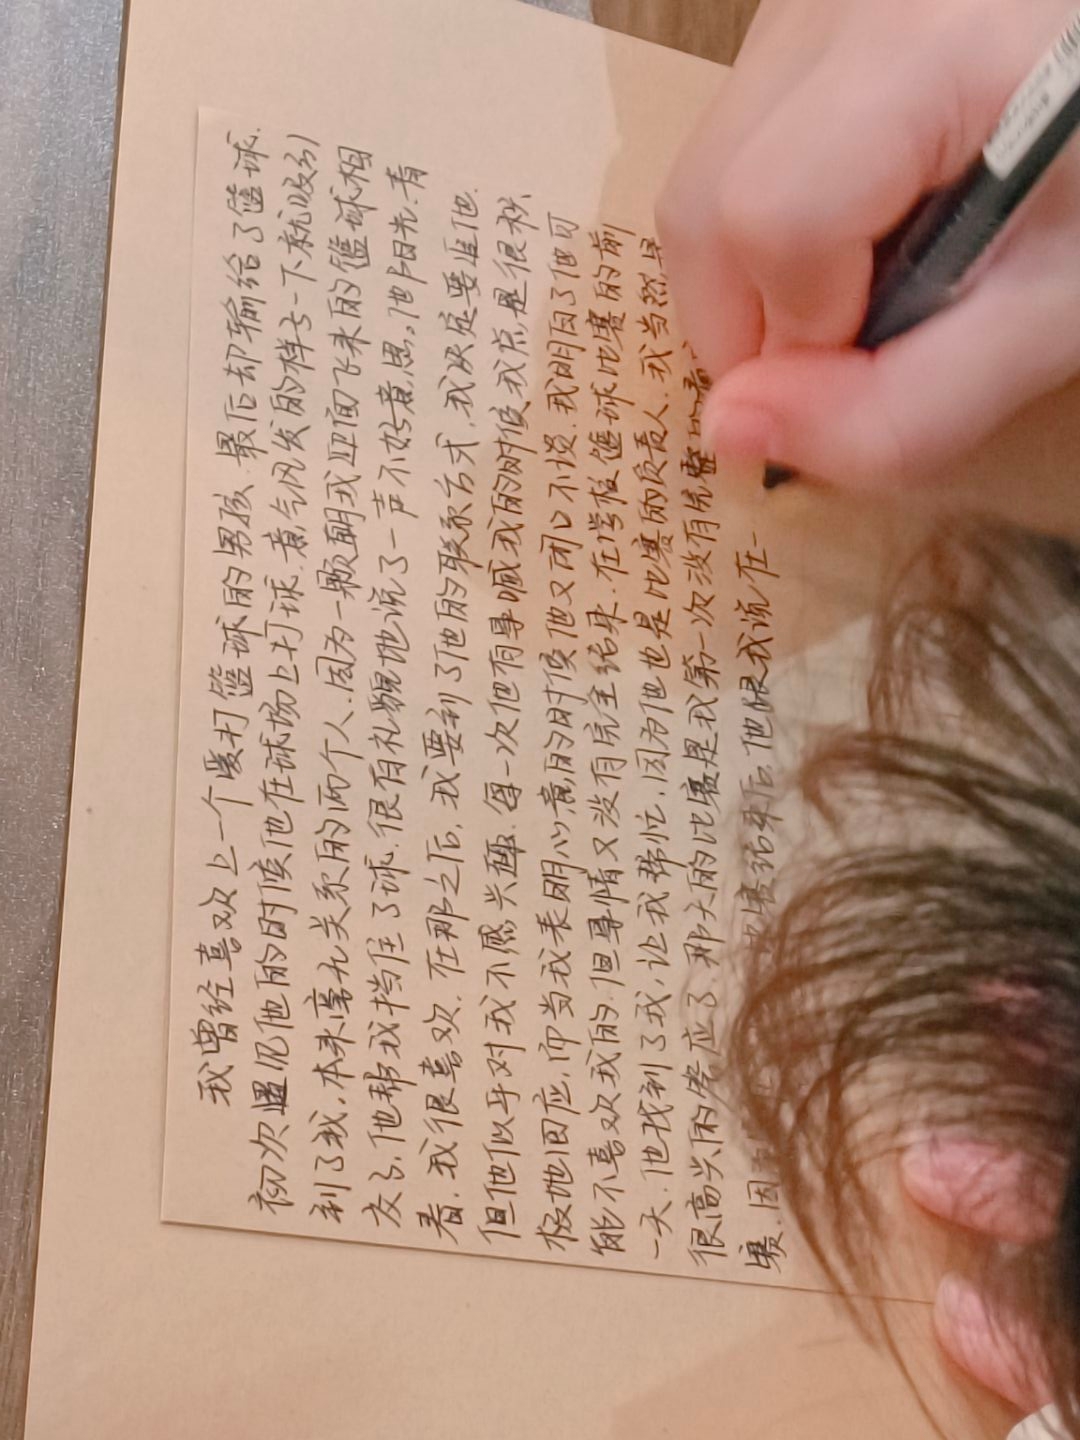 我曾经喜欢上一个爱打篮球的男孩.最后却输给了篮球.
初次遇见他的时候他在球场上打球.意气风发的样子一下就吸引
到了我,本来毫无关系的两个人.因为一颗朝我迎面飞来的篮球相
友了,他帮我挡住了球.很有礼貌地说了一声不好意思。他阳光.青
春.我很喜欢.在那之后,我要到了他的联系方式,我决定要追他.
但他似乎对我不感兴趣.每一次他有事喊我的时候我总是很积
极地回应,而当我表明心意的时候他又闭口不谈.我明白了他可
能不喜欢我的.但事情又没有完全结束.在学校篮球比赛的前
一天.他找到了我,让我帮忙,因为他也是比赛的负责人.我当然是
很高兴的答应了.那天的比赛是我第一次没有完整的看
赛.因 比赛结束后.他跟我说在一